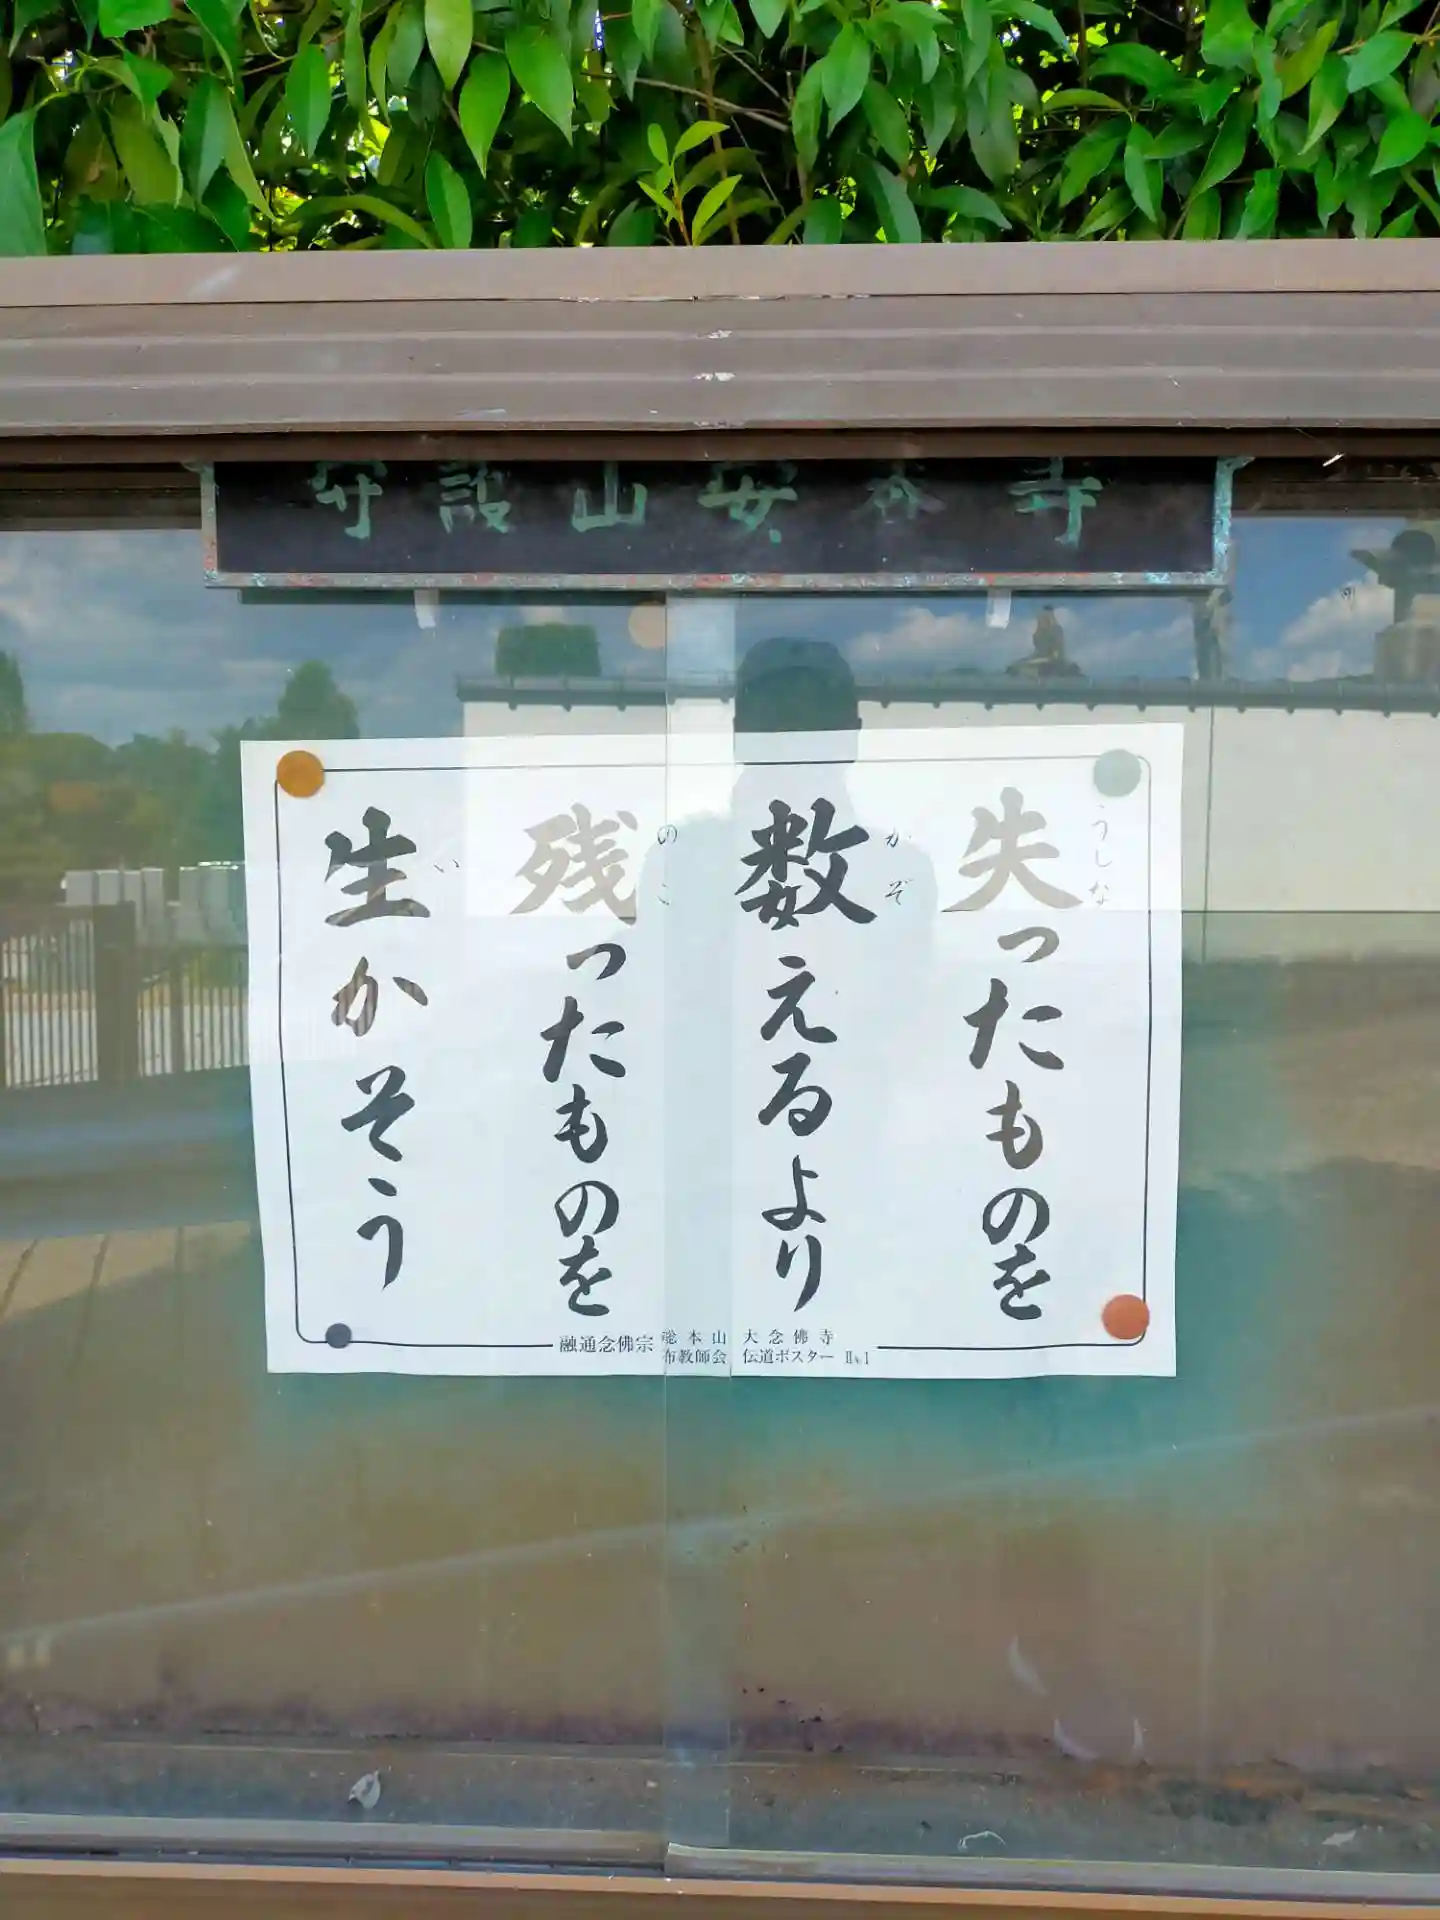 守護山安楽寺
失ったものを
うしな
数えるより
かぞ
残ったものを
のこ
生かそう
い
融通念佛宗
総本山 大念佛寺
布教師会 伝道ポスター